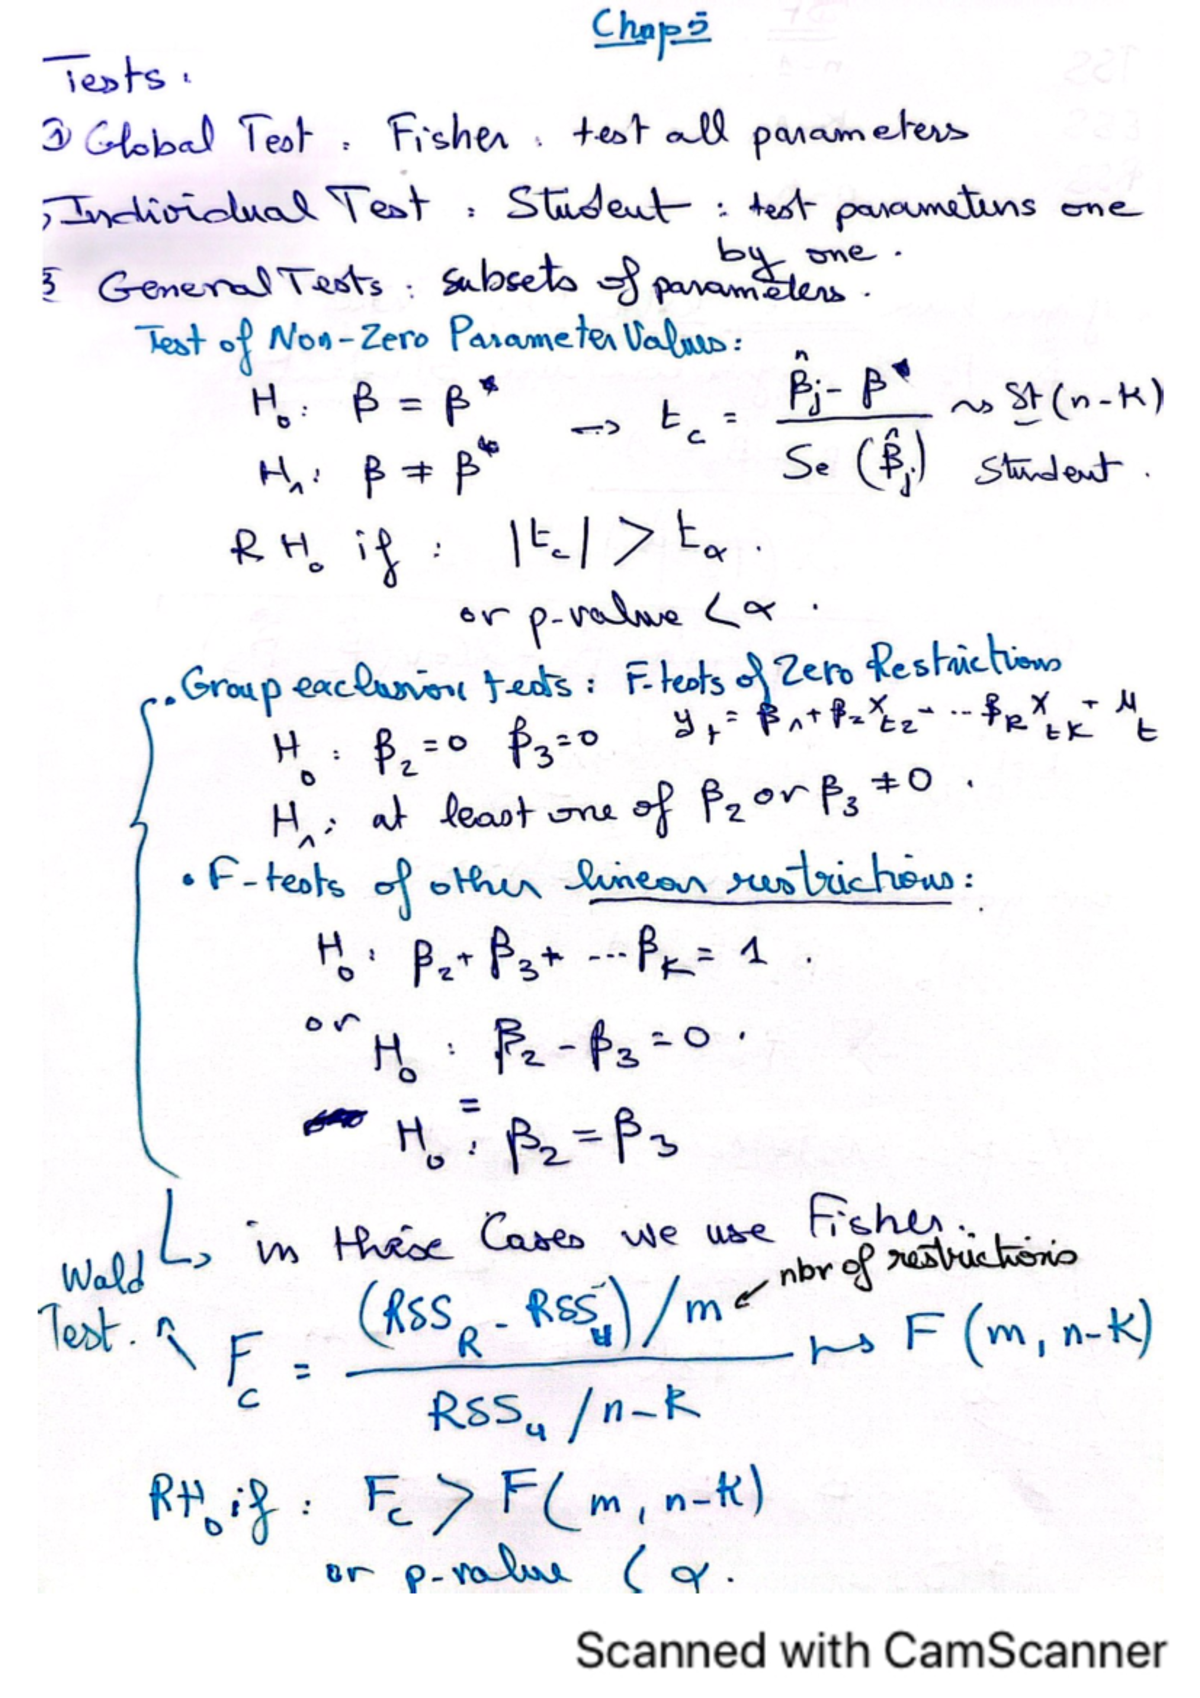 Chap 5
Tests:
① Global Test : Fisher : test all parameters
, Individual Test : Student : test parameters one
by one .
3 General Tests : subsets of parameters .
Test of Non-Zero Parameter Values :
H₀ : β = β* → t_c = (β̂_j - β*) / Se (β̂_j) ~> St (n-K)
H₁ : β ≠ β* Student .
R H₀ if : |t_c| > t_α .
or p-value < α .
. Group exclusion tests : F-tests of Zero Restrictions
H₀ : β₂ = 0 β₃ = 0 y_t = β₁ + β₂ X_t2 + ... β_K X_tK + μ_t
H₁ : at least one of β₂ or β₃ ≠ 0 .
• F-tests of other linear restrictions :
H₀ : β₂ + β₃ + ... β_K = 1 .
or H₀ : β₂ - β₃ = 0 .
=
H₀ : β₂ = β₃
↳ in these Cases we use Fisher .
Wald Test .
nbr of restrictions
F_c = ((RSS_R - RSS_u) / m) / (RSS_u / n-K) ↦ F (m, n-K)
RH₀ if : F_c > F(m, n-K)
or p-value < α .
Scanned with CamScanner